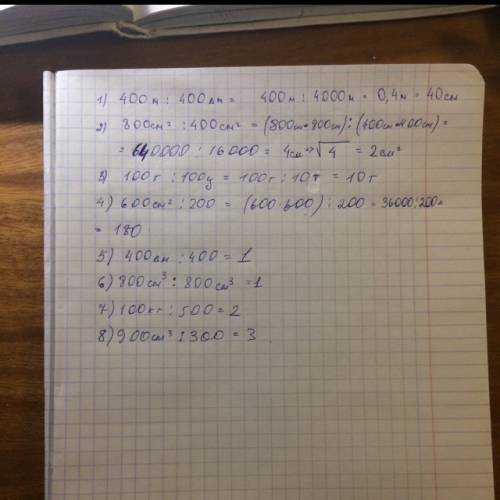 1) 400м : 400дм = 400м : 4000м = 0,4м = 40см
2) 800см² : 400см² = (800см*800см) : (400см*400см) =
= 640000 : 16000 = 4см => √4 = 2см²
3) 100т : 100ц = 100т : 10т = 10т
4) 600см² : 200 = (600*600) : 200 = 36000:200=
= 180
5) 400дм : 400 = 1
6) 800см³ : 800см³ = 1
7) 100кг : 500 = 2
8) 900см³ : 300 = 3